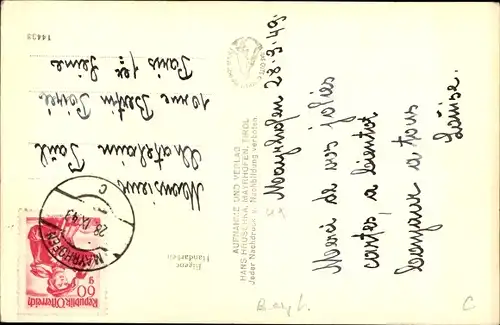 Mayrhofen 28.9.49.
Merci de vos jolies
cartes, a bientot
bonjour a tous
Louise.
AUFNAHME UND VERLAG
HANS HRUSCHKA, MAYRHOFEN, TIROL
Jeder Nachdruck u. Nachbildung verboten.
Eigene
Handarbeit
Monsieur
Chatelain Paul
10 rue Bertin Poirée
Paris 1er Seine
14403
MAYRHOFEN
C
60
g
Republik Österreich
C